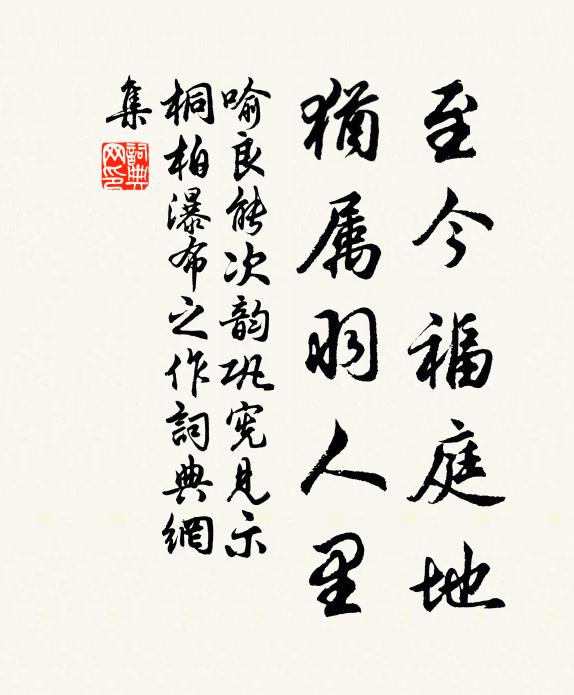 至今福庭地
犹属羽人里
喻良能次韵巩宪见示
桐柏瀑布之作詞典網
集
詞典
网印